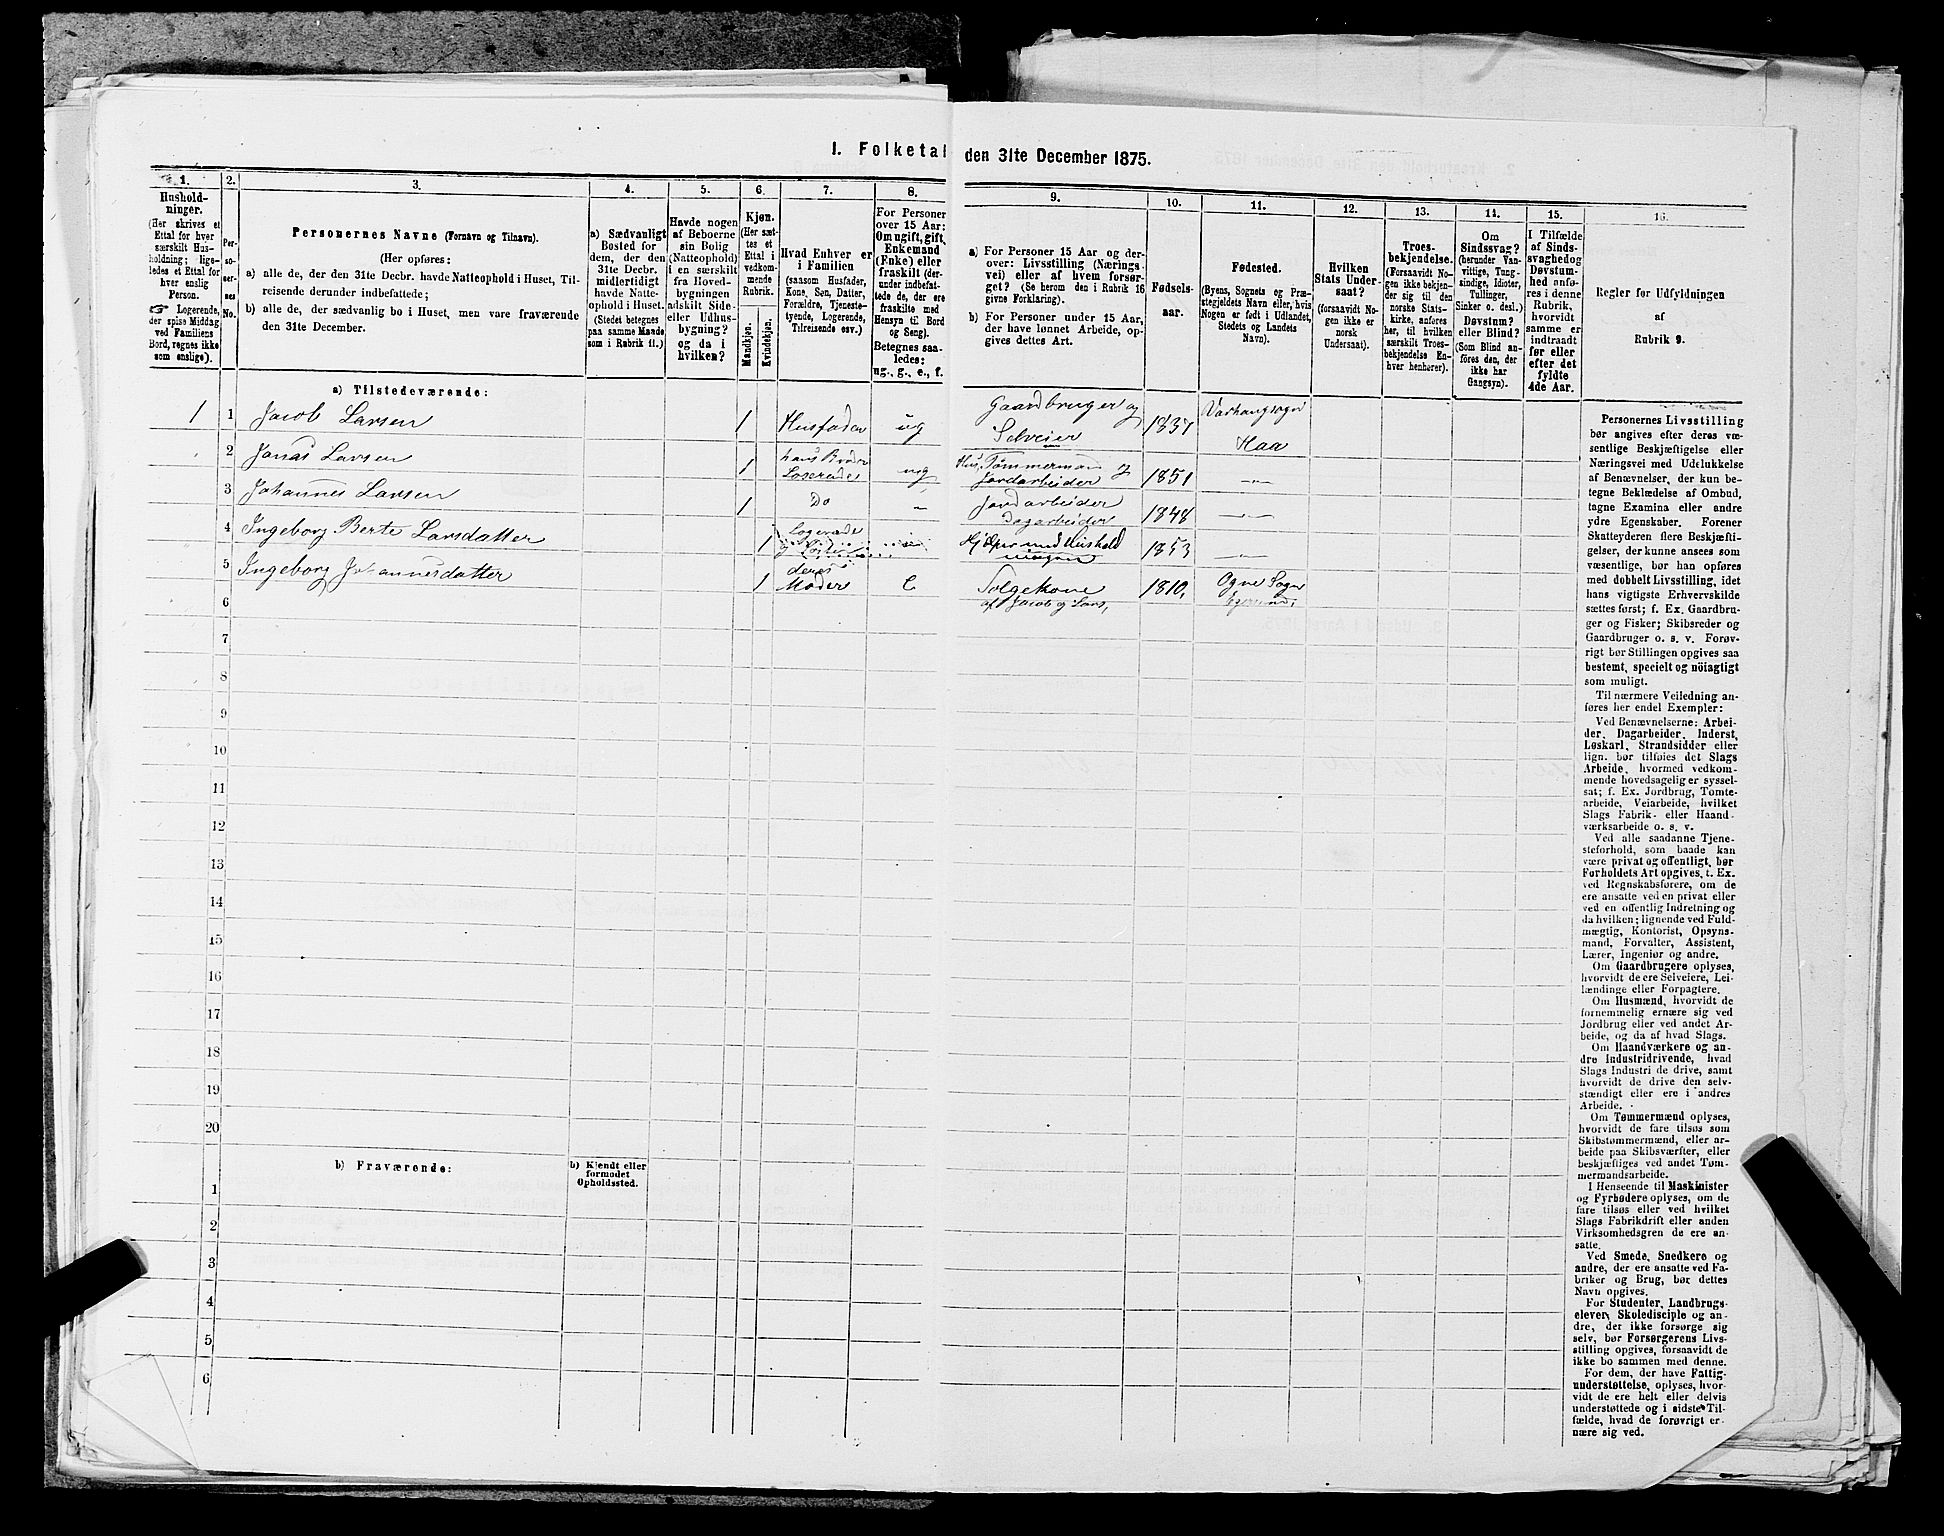 I. Folketal den 31te December 1875.
1.
Hushold-
ninger.
(Her skrives et
Ettal for hver
særskilt Hus-
holdning; lige-
ledes et Ettal for
hver enslig
Person.
☞ Logerende,
der spise Middag
ved Familiens
Bord, regnes ikke
som enslige).
2.
Per-
so-
ner-
nes
No.
3.
Personernes Navne (Fornavn og Tilnavn).
(Her opføres:
a) alle de, der den 31te Decbr. havde Natteophold i Huset, Til-
reisende derunder indbefattede;
b) alle de, der sædvanlig bo i Huset, men vare fraværende
den 31te December.
4.
a) Sædvanligt
Bosted for
dem, der den
31te Decbr.
midlertidigt
havde Natte-
ophold i Huset.
(Stedet betegnes
paa samme Maade
som i Rubrik 11.)
5.
Havde nogen
af Beboerne
sin Bolig
(Natteophold)
i en særskilt
fra Hoved-
bygningen
adskilt Side-
eller Udhus-
bygning?
og da i
hvilken?
6.
Kjøn.
(Her sæt-
tes et
Ettal i
vedkom-
mende
Rubrik.
Mandkjøn.
Kvindekjøn.
7.
Hvad Enhver er
i Familien
(saasom Husfader,
Kone, Søn, Datter,
Forældre, Tjeneste-
tyende, Logerende,
Tilreisende osv.)
8.
For Personer
over 15 Aar:
Om ugift, gift,
Enkemand
(Enke) eller
fraskilt (der-
under indbefat-
tede de, der ere
fraskilte med
Hensyn til Bord
og Seng).
Betegnes saa-
ledes:
ug., g., e., f.
9.
a) For Personer 15 Aar og der-
over: Livsstilling (Nærings-
vei) eller af hvem forsør-
get? (Se herom den i Rubrik 16
givne Forklaring).
b) For Personer under 15 Aar,
der have lønnet Arbeide, op-
gives dettes Art.
10.
Fødsels-
aar.
11.
Fødested.
(Byens, Sognets og Præ-
stegjeldets Navn eller, hvis
Nogen er født i Udlandet,
Stedets og Landets
Navn).
12.
Hvilken
Stats Under-
saat?
(forsaavidt No-
gen ikke er
norsk
Undersaat).
13.
Troes-
bekjendelse.
(Forsaavidt No-
gen ikke bekjen-
der sig til den
norske Stats-
kirke, anføres
her, til hvilken
særskilt Troes-
bekjendelse En-
hver henhører).
14.
Om
Sindssvag?
(herunder Van-
vittige, Tung-
sindige, Idioter,
Tullinger,
Sinker o. desl.)
Døvstum?
eller Blind?
(Som Blind an-
føres den, der
ikke har
Gangsyn).
15.
I Tilfælde
af Sinds-
svaghed og
Døvstum-
hed anfø-
res i denne
Rubrik,
hvorvidt
samme er
indtraadt
før eller
efter det
fyldte
4de Aar.
16.
Regler for Udfyldningen
af
Rubrik 9.
a) Tilstedeværende:
1 1 Jacob Larsen 1 Husfader ug Gaardbruger og Selveier 1837 Varhaugsogn Haa
2 Jonas Larsen 1 hans Broder Logerende ug Hus, Tømmerman og Jordarbeider 1851 —"—
3 Johannes Larsen 1 Do — Jordarbeider Dagarbeider 1848 —"—
4 Ingeborg Berte Larsdatter 1 Logerende og Søster Hjælper med Hushold ningen 1853 —"—
5 Ingeborg Johannesdatter 1 deres Moder E Folgekone af Jacob og Lars, 1810, Ogne Sogn Egersund,
6
7
8
9
10
11
12
13
14
15
16
17
18
19
20
b) Fraværende:
b) Kjendt eller
formodet
Opholdssted.
1
2
3
4
5
6
Personernes Livsstilling
bør angives efter deres væ-
sentlige Beskjæftigelse eller
Næringsvei med Udelukkelse
af Benævnelser, der kun be-
tegne Beklædelse af Ombud,
tagne Examina eller andre
ydre Egenskaber. Forener
Skatteyderen flere Beskjæfti-
gelser, der kunne ansees som
væsentlige, bør han opføres
med dobbelt Livsstilling, idet
hans vigtigste Erhvervskilde
sættes først; f. Ex. Gaardbru-
ger og Fisker; Skibsreder og
Gaardbruger o. s. v. Forøv-
rigt bør Stillingen opgives saa
bestemt, specielt og nöiagtigt
som muligt.
Til nærmere Veiledning an-
føres her endel Exempler:
Ved Benævnelserne: Arbei-
der, Dagarbeider, Inderst,
Løskarl, Strandsidder eller
lign. bør tilføies det Slags
Arbeide, hvormed vedkom-
mende hovedsagelig er syssel-
sat; f. Ex. Jordbrug, Tomte-
arbeide, Veiarbeide, hvilket
Slags Fabrik- eller Haand-
værksarbeide o. s. v.
Ved alle saadanne Tjene-
steforhold, som baade kan
være privat og offentligt, bør
Forholdets Art opgives, t. Ex.
ved Regnskabsførere, om de
ere ansatte ved en privat eller
ved en offentlig Indretning og
da hvilken; lignende ved Fuld-
mægtig, Kontorist, Opsyns-
mand, Forvalter, Assistent,
Lærer, Ingeniør og andre.
Om Gaardbrugere oplyses,
hvorvidt de ere Selveiere, Lei-
lændinge eller Forpagtere.
Om Husmænd, hvorvidt de
fornemmelig ernære sig ved
Jordbrug eller ved andet Ar-
beide, og da af hvad Slags.
Om Haandværkere og an-
dre Industridrivende, hvad
Slags Industri de drive, samt
hvorvidt de drive den selv-
stændigt eller ere i andres
Arbeide.
Om Tømmermænd oplyses,
hvorvidt de fare tilsøs som
Skibstømmermænd, eller ar-
beide paa Skibsværfter, eller
beskjæftiges ved andet Tøm-
mermandsarbeide.
I Henseende til Maskinister
og Fyrbødere oplyses, om de
fare tilsøs eller ved hvilket
Slags Fabrikdrift eller anden
Virksomhedsgren de ere an-
satte.
Ved Smede, Snedkere og
andre, der ere ansatte ved Fa-
briker og Brug, bør dettes
Navn opgives.
For Studenter, Landbrugs-
elever, Skoledisciple og an-
dre, der ikke forsørge sig
selv, bør Forsørgerens Livs-
stilling opgives, forsaavidt de
ikke bo sammen med denne.
For dem, der have Fattig-
understøttelse, oplyses, hvor-
vidt de ere helt eller delvis
understøttede og i sidste Til-
fælde, hvad de forøvrigt er-
nære sig ved.